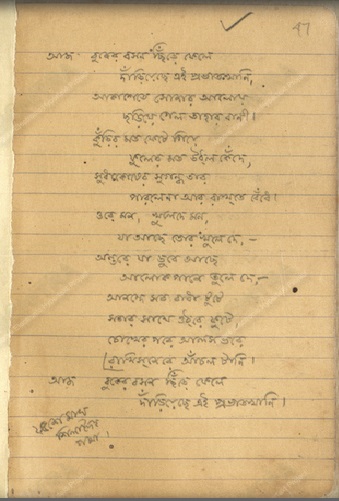 47
আজ বুকের বসন ছিঁড়ে ফেলে
দাঁড়িয়েছে এই প্রভাতখানি,
আকাশেতে সোনার আলোয়
ছড়িয়ে গেল তাহার বাণী।
কুঁড়ির মত ফেটে গিয়ে
ফুলের মত উঠল কেঁদে,
সুধাকোষের সুগন্ধ তার
পারলেনা আর রাখতে বেঁধে।
ওরে মন, খুলে দে মন,
যা আছে তোর খুলে দে,—
অন্তরে যা ডুবে আছে
আলোক পানে তুলে দে,—
আনন্দে সব বাধা টুটে
সবার সাথে ওঠ্‌রে ফুটে,
চোখের পরে আলস ভরে
রাখিসনে আঁচল টানি।
আজ বুকের বসন ছিঁড়ে ফেলে
দাঁড়িয়েছে এই প্রভাতখানি।
শিলাইদা